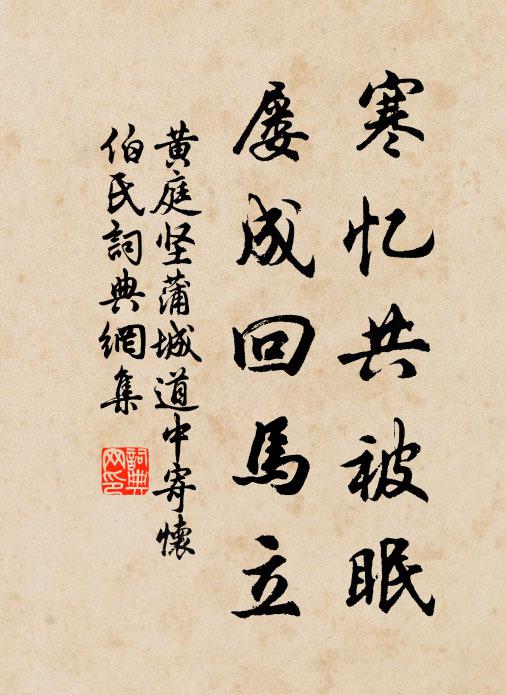 寒忆共被眠
屡成回馬立
黄庭坚蒲城道中寄懷
伯氏詞典網集
詞典網印